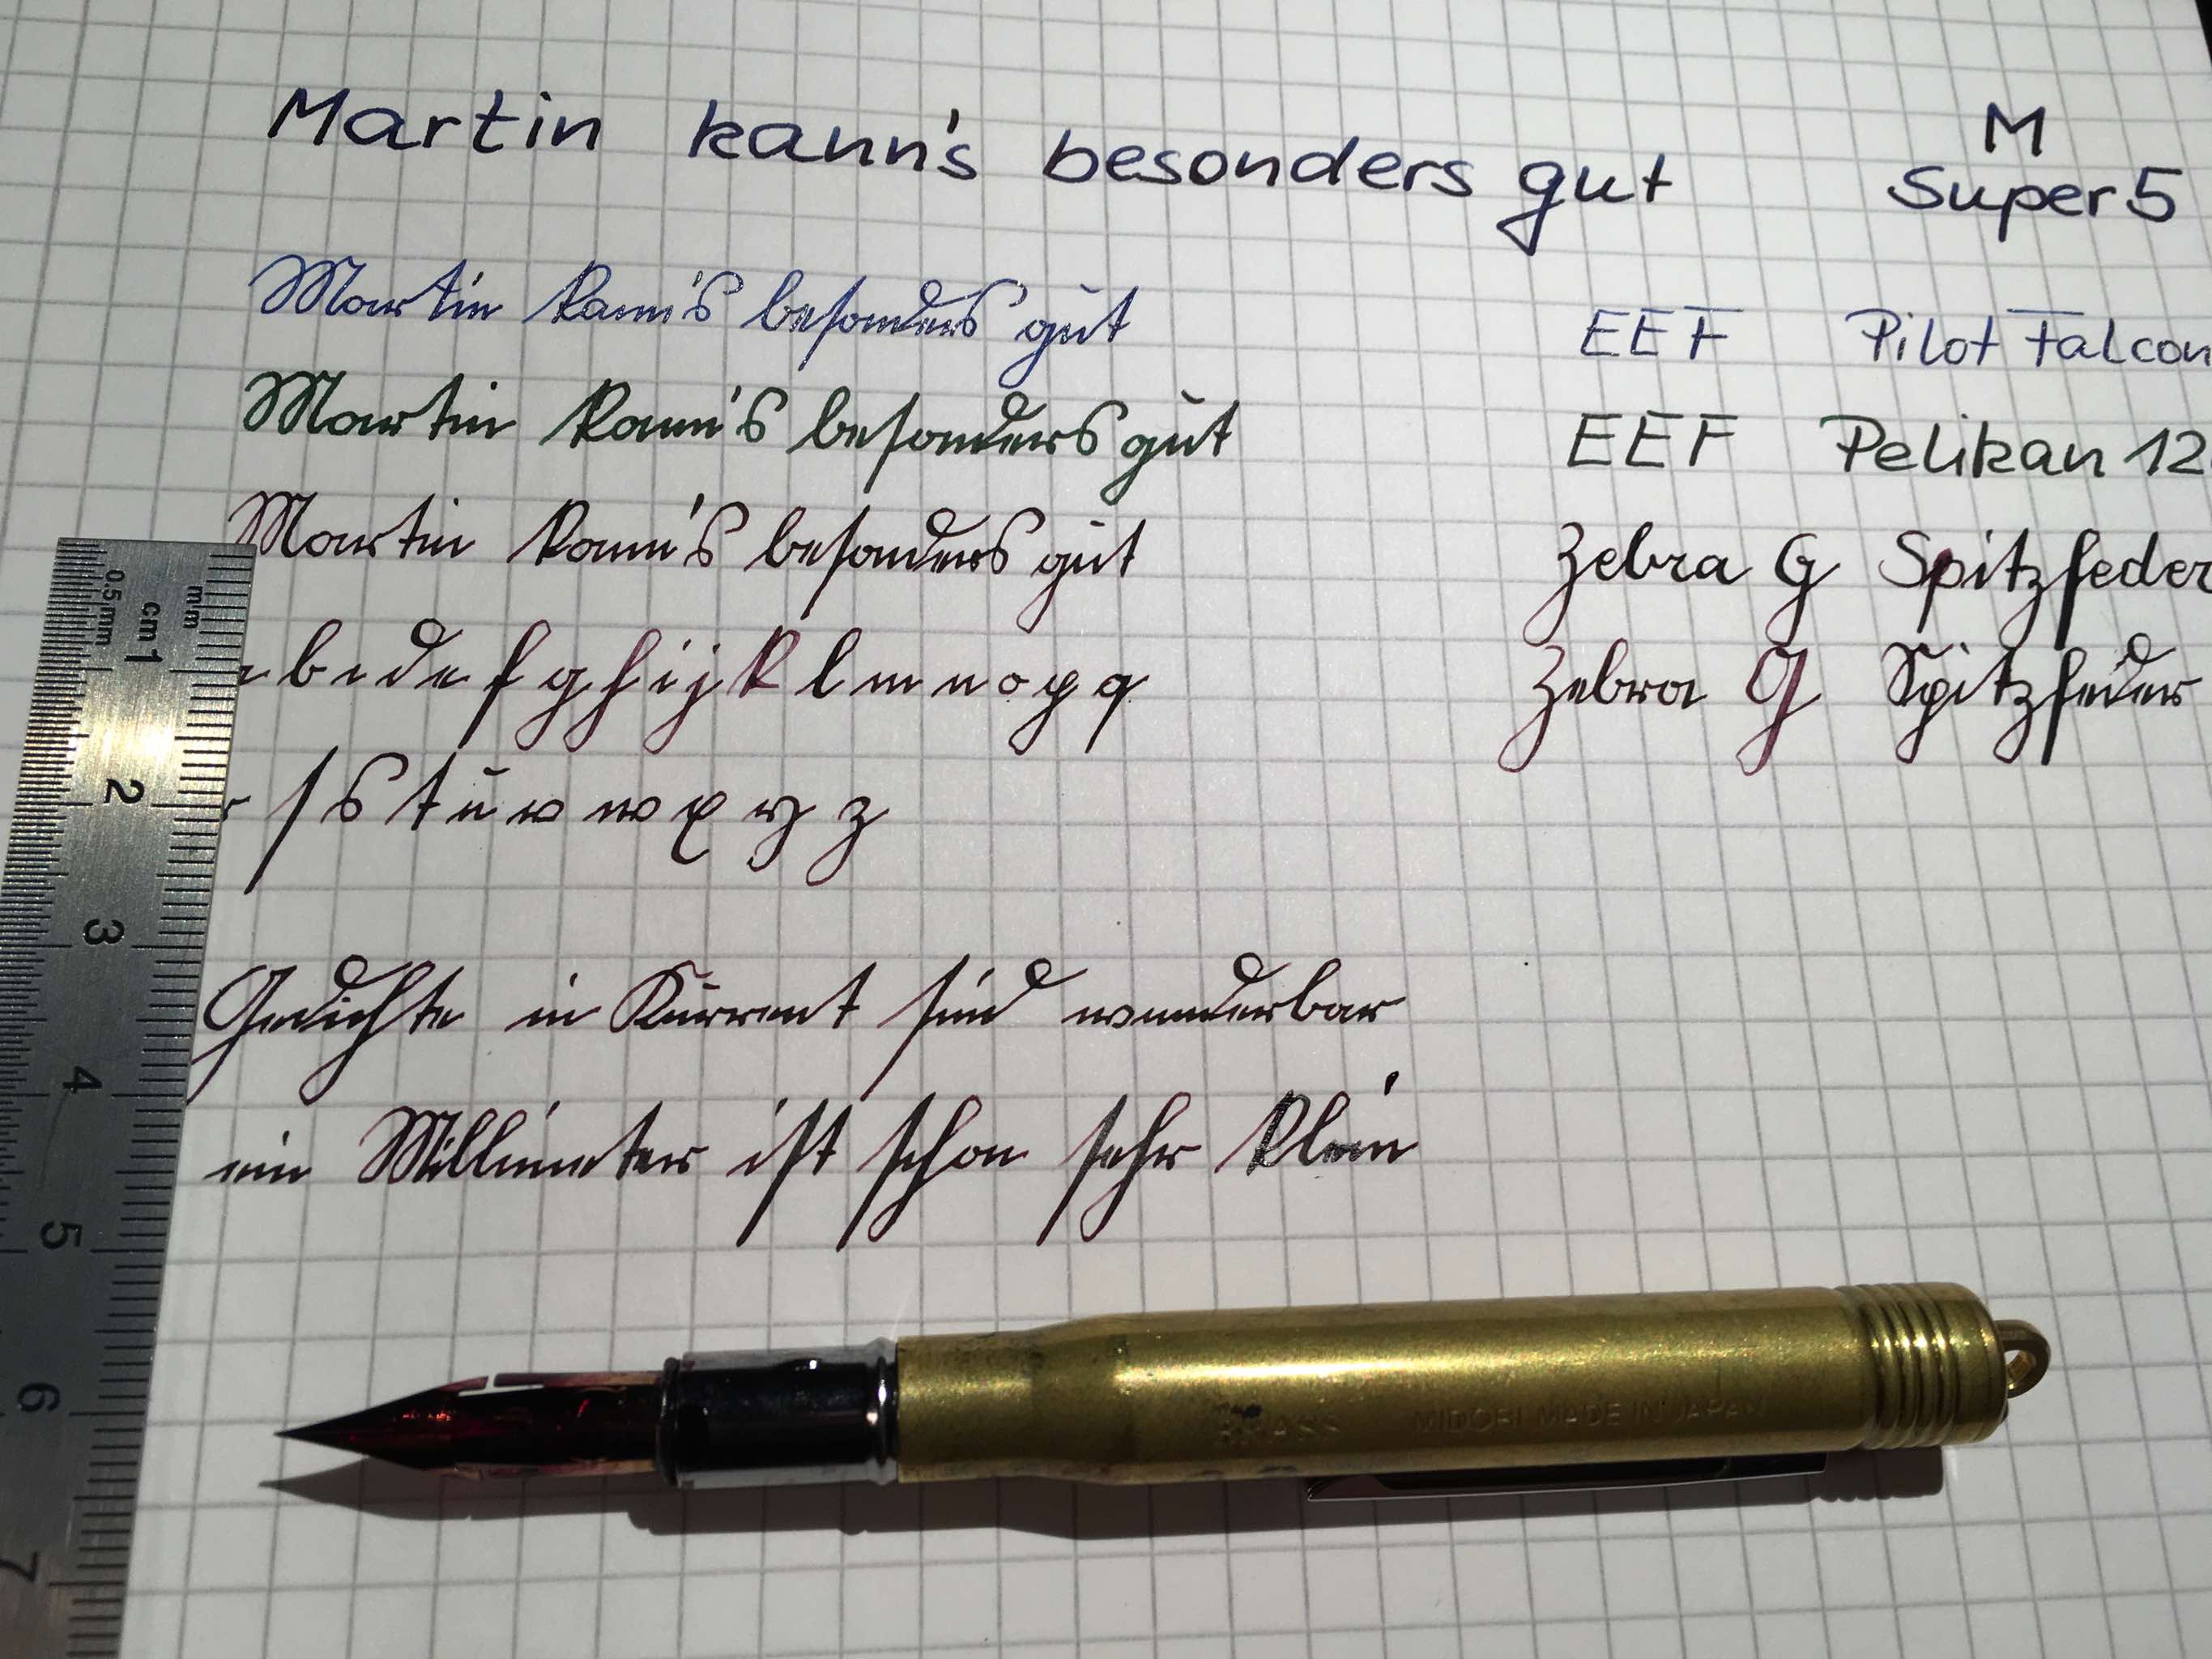 Martin kann's besonders gut M
Super5
Martin kann's besonders gut EEF Pilot Falcon
Martin kann's besonders gut EEF Pelikan 12
Martin kann's besonders gut Zebra G Spitzfeder
a b c d e f g h i j k l m n o p q Zebra G Spitzfeder
r ſ s t u v w x y z
Gedichte in Kurrent ſind wunderbar
ein Millimeter iſt ſchon ſehr klein
0.5mm cm mm
1
2
3
4
5
6
7
BRASS MIDORI MADE IN JAPAN